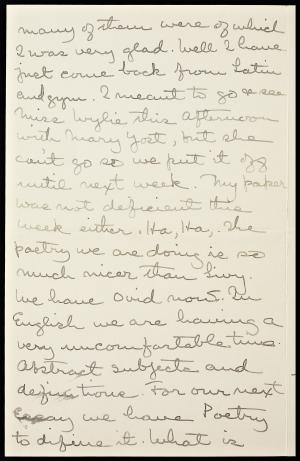 many of them were of which
I was very glad. Well I have
just come back from Latin
and gym. I meant to go & see
Miss Wylie this afternoon
with Mary Yost, but she
can't go so we put it off
until next week. My paper
was not deficient this
week either. Ha, Ha,. The
poetry we are doing is so
much nicer than Livy.
We have Ovid now. In
English we are having a
very uncomfortable time.
Abstract subjects and
definitions. For our next
we have Poetry
to difine it. What is